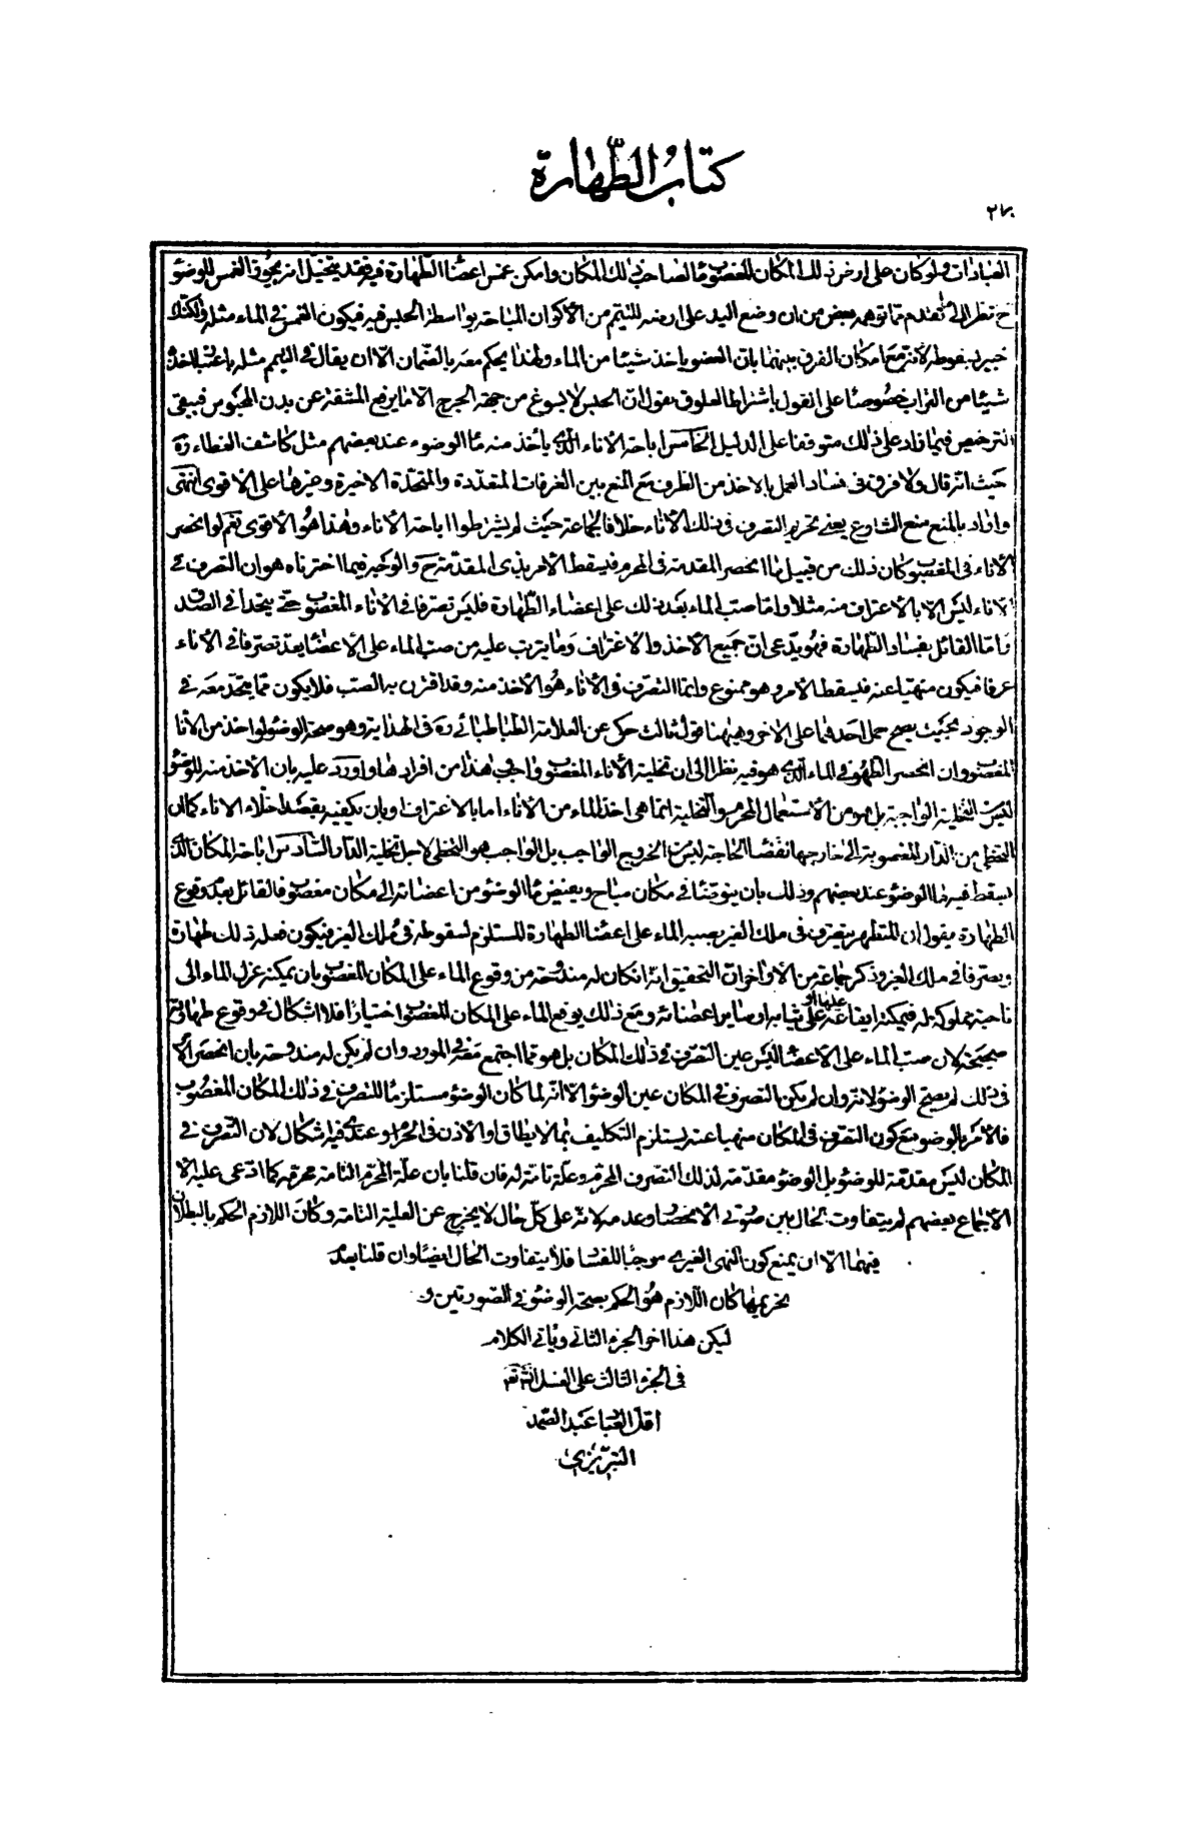 كتاب الطهارة
٢٧٠
العبادات ولو كان على ارض ذلك المكان المغصوب ماء لصاحب ذلك المكان وامكن غمس اعضاء الطهارة فيه فقد يتخيل انه يجوز الغمس للوضوء
ح نظرا الى ما تقدم مما توهمه بعض من ان وضع اليد على ارضه للتيمم من الأكوان المباحة بواسطة الحبس فيه فيكون الغمس في الماء مثله ولكنك
خبير بسقوطه لأنه مع امكان الفرق بينهما بان العضو ياخذ شيئا من الماء ولهذا يحكم معه بالضمان الا ان يقال في التيمم مثله باعتبار اخذه
شيئا من التراب خصوصا على القول باشتراط العلوق نقول ان الحبس لا يسوغ من جهة الحرج الا ما يرفع المشقة عن بدن المحبوس فيبقى
الترخيص فيما زاد على ذلك متوقفا على الدليل الخامس اباحة الاناء الذي يأخذ منه ماء الوضوء عند بعضهم مثل كاشف الغطاء ره
حيث انه قال ولا فرق في فساد العمل بالاخذ من الظرف مع المنع بين الغرفات المتعددة والمتحدة الاخيرة وغيرها على الاقوى انتهى
واراد بالمنع منع الشارع يعني تحريم التصرف في ذلك الأناء خلافا لجماعة حيث لم يشترطوا اباحة الأناء وهذا هو الأقوى نعم لو انحصر
الأناء في المغصوب كان ذلك من قبيل ما انحصر المقدمة في المحرم فيسقط الأمر بذي المقدمة ح والوجه فيما اخترناه هو ان التصرف في
الأناء ليس الا بالاغتراف منه مثلا واما صب الماء بعد ذلك على اعضاء الطهارة فليس تصرفا في الأناء المغصوب حتى يتحدا في الصدق
واما القائل بفساد الطهارة فهو يدعى ان جميع الأخذ والاغتراف وما يترتب عليه من صب الماء على الأعضاء يعد تصرفا في الأناء
عرفا فيكون منهيا عنه فيسقط الامر وهو ممنوع وانما التصرف في الأناء هو الأخذ منه وقد اقترن به الصب فلا يكون مما يتحد معه في
الوجود بحيث يصح حمل احدهما على الاخر وهيهنا قول ثالث حكى عن العلامة الطباطبائي ره في الهداية وهو صحة الوضوء لو اخذ من الأناء
المغصوب وان انحصر الطهور في الماء الذي هو فيه نظرا الى ان تخلية الأناء المغصوب واجب وهذا من افرادها واورد عليه بان الأخذ منه للوضوء
ليس التخلية الواجبة بل هو من الأستعمال المحرم والتخلية انما هي اخذ الماء من الأناء اما بالاغتراف او بان يكفيه بقصد اخلاء الاناء كما ان
التخطي من الدار المغصوبة الى خارجها لقضاء الحاجة ليس الخروج الواجب بل الواجب هو التخطي لاجل تخلية الدار السادس اباحة المكان الذي
يسقط فيه ماء الوضوء عند بعضهم وذلك بان يتوضأ في مكان مباح ويفيض ماء الوضوء من اعضائه الى مكان مغصوب فالقائل بعدم وقوع
الطهارة يقول ان المتطهر يتصرف في ملك الغير بصبه الماء على اعضاء الطهارة المستلزم لسقوطه في ملك الغير فيكون فعله ذلك طهارة
وتصرفا في ملك الغير وذكر جماعة من الأواخر ان التحقيق انه ان كان له مندوحة من وقوع الماء على المكان المغصوب بان يمكنه عزل الماء الى
ناحية مملوكة له فيمكنه ايقاعه عليها او على ثيابه او ساير اعضائه ومع ذلك يوقع الماء على المكان المغصوب اختيارا فلا اشكال في وقوع طهارته
صحيحة لان صب الماء على الأعضاء ليس عين التصرف في ذلك المكان بل هو مما اجتمع معه في المورد وان لم يكن له مندوحة بان انحصر الأمر
في ذلك لم يصح الوضوء لانه وان لم يكن التصرف في المكان عين الوضوء الا انه لما كان الوضوء مستلزما للتصرف في ذلك المكان المغصوب
فالأمر بالوضوء مع كون التصرف في المكان منهيا عنه يستلزم التكليف بما لا يطاق او الاذن في الحرام وعندي فيه اشكال لان التصرف في
المكان ليس مقدمة للوضوء بل الوضوء مقدمة لذلك التصرف المحرم وعلة تامة له فان قلنا بان علة المحرم التامة محرمة كما ادعى عليه الا
الأجماع بعضهم لم يتفاوت الحال بين صورتي الأنحصار وعدمه لانه على كل حال لا يخرج عن العلية التامة وكان اللازم الحكم بالبطلان
فيهما الا ان يمنع كون النهى الغيري موجبا للفساد فلا يتفاوت الحال ايضا وان قلنا بعدم
تحريمها كان اللازم هو الحكم بصحة الوضوء في الصورتين و
ليكن هذا اخر الجزء الثاني ويأتي الكلام
في الجزء الثالث على الغسل انش تعم
اقل العباد عبد الصمد
التبريزي